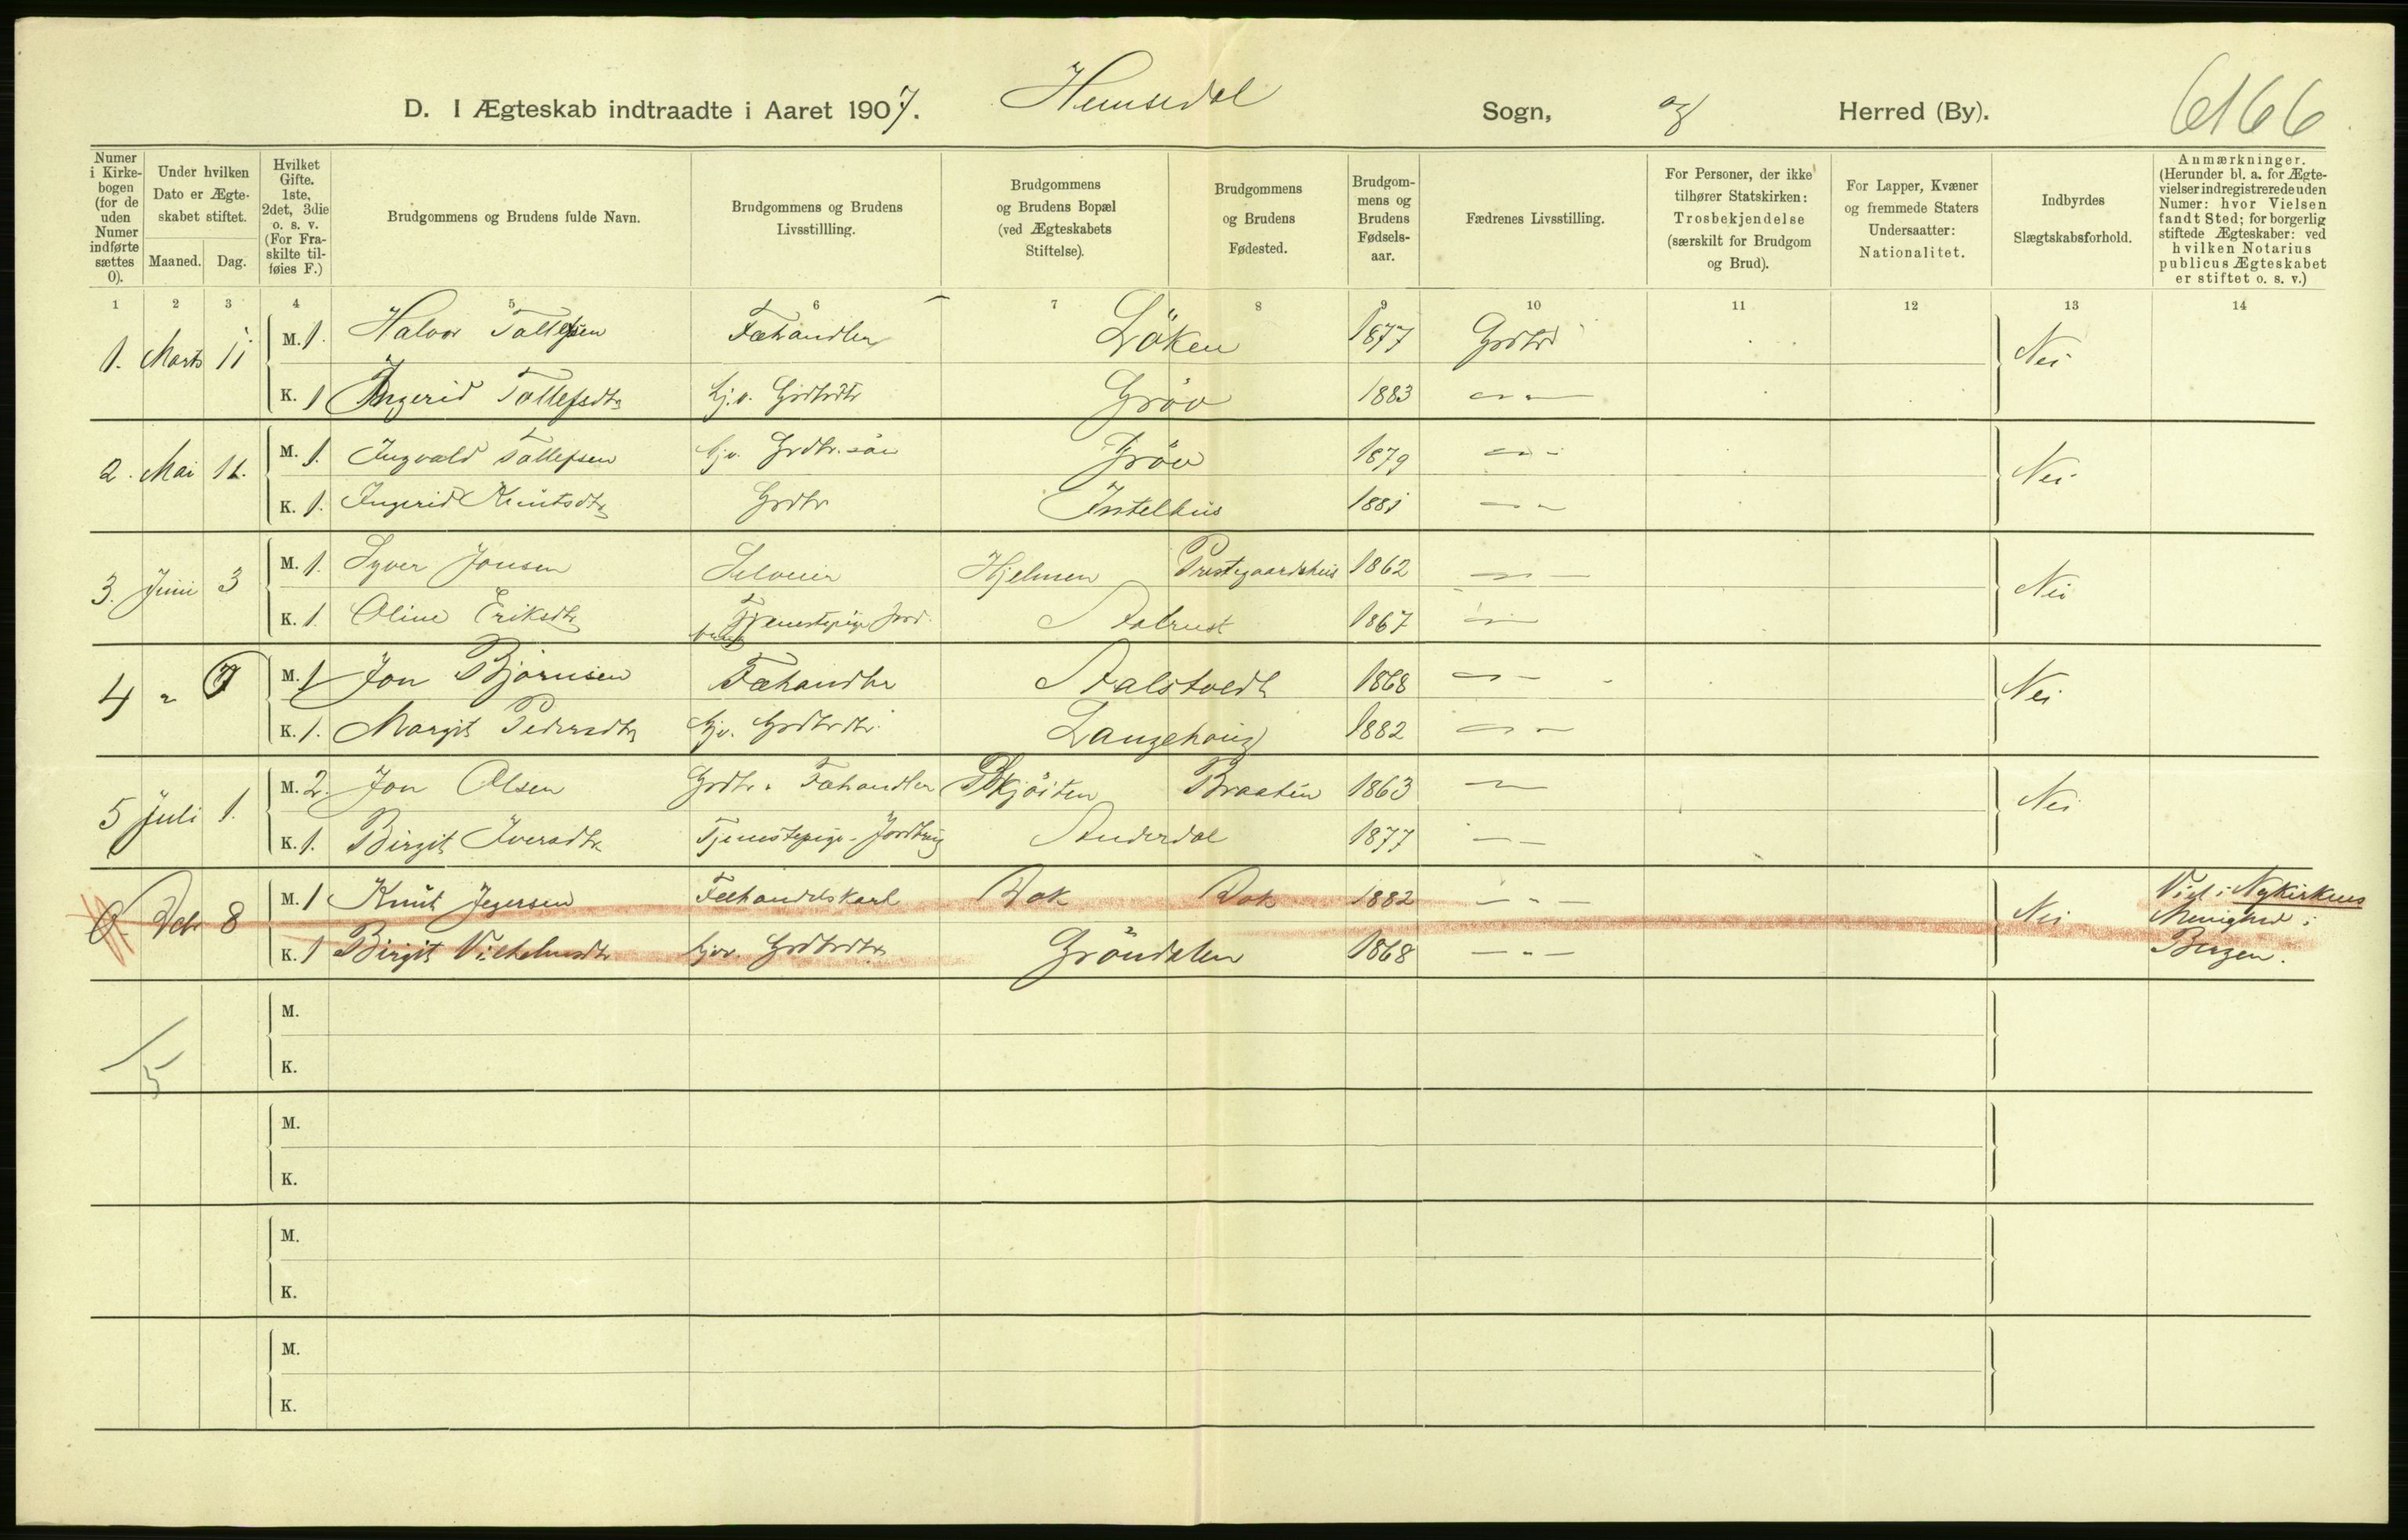 D. I Ægteskab indtraadte i Aaret 1907. Hemsedal Sogn, og Herred (By). 6166
Numer i Kirkebogen (for de uden Numer indførte sættes 0).
Under hvilken Dato er Ægteskabet stiftet.
Maaned. Dag.
Hvilket Gifte. 1ste, 2det, 3die o. s. v. (For Fraskilte tilføies F.)
Brudgommens og Brudens fulde Navn.
Brudgommens og Brudens Livsstillling.
Brudgommens og Brudens Bopæl (ved Ægteskabets Stiftelse).
Brudgommens og Brudens Fødested.
Brudgommens og Brudens Fødselsaar.
Fædrenes Livsstilling.
For Personer, der ikke tilhører Statskirken: Trosbekjendelse (særskilt for Brudgom og Brud).
For Lapper, Kvæner og fremmede Staters Undersaatter: Nationalitet.
Indbyrdes Slægtskabsforhold.
Anmærkninger. (Herunder bl. a. for Ægtevielser indregistrerede uden Numer: hvor Vielsen fandt Sted; for borgerlig stiftede Ægteskaber: ved hvilken Notarius publicus Ægteskabet er stiftet o. s. v.)
1 2 3 4 5 6 7 8 9 10 11 12 13 14
1. Marts 11 M. 1. Halvor Tollefsen Fæhandler Löken 1877 Grdbr Nei
K. 1 Ingerid Tollefsdtr Hj.v. Grdbrdtr Gröv 1883 — " —
2. Mai 11. M. 1. Ingvald Tollefsen hjv. Grdbr. sön Gröv 1879 — " — Nei
K. 1. Ingerid Knutsdtr Grdbr Instelhus 1881 — " —
3. Juni 3 M. 1. Syver Jonsen Selveier Hjelmen Prestegaardshus 1862 — " — Nei
K. 1. Oline Eriksdtr Tjenestepige Jord. 1867 — " —
4 " 7 M. 1 Jon Björnsen Fæhandler 1868 — " — Nei
K. 1. Margit Pedersdtr hjv. Grdbrdtr. Langehaug 1882 — " —
5 Juli 1. M. 2. Jon Olsen Grdbr. Fæhandler Skjöiten Braaten 1863 — " — Nei
K. 1. Birgit Iversdtr Tjenestepige - Jordbrug 1877 — " —
8 M. 1 Knut Fæhandelskarl 1882 — " — Nei Viet i Nykirkens
Menighed i
K. 1 Birgit Vilhelmsdtr hjv. Grdbrdtr. Gröndalen 1868 — " — Bergen.
M.
K.
5
M.
K.
M.
K.
M.
K.